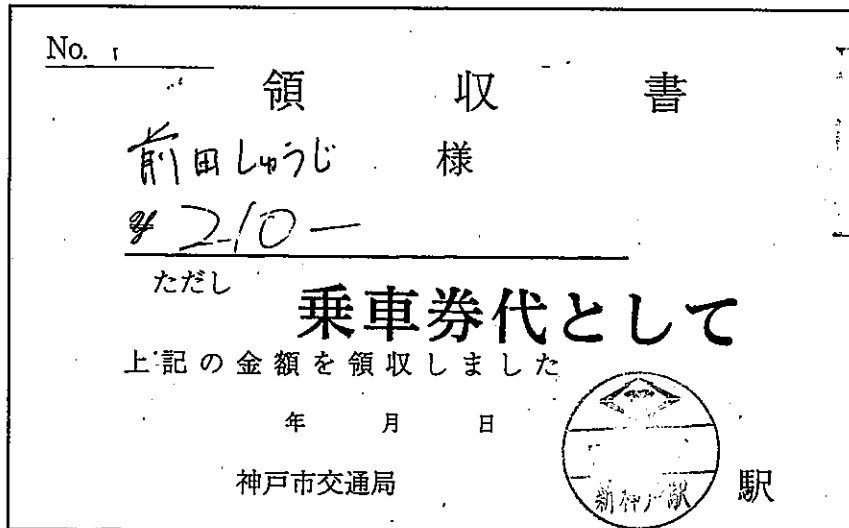 No.
領収書
前田しゅうじ 様
¥210-
ただし
乗車券代として
上記の金額を領収しました
年 月 日
神戸市交通局
新神戸駅
駅